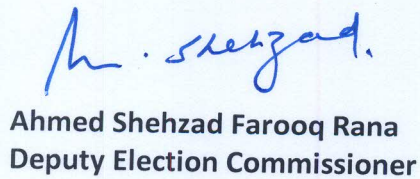 M. Shehzad.
Ahmed Shehzad Farooq Rana
Deputy Election Commissioner